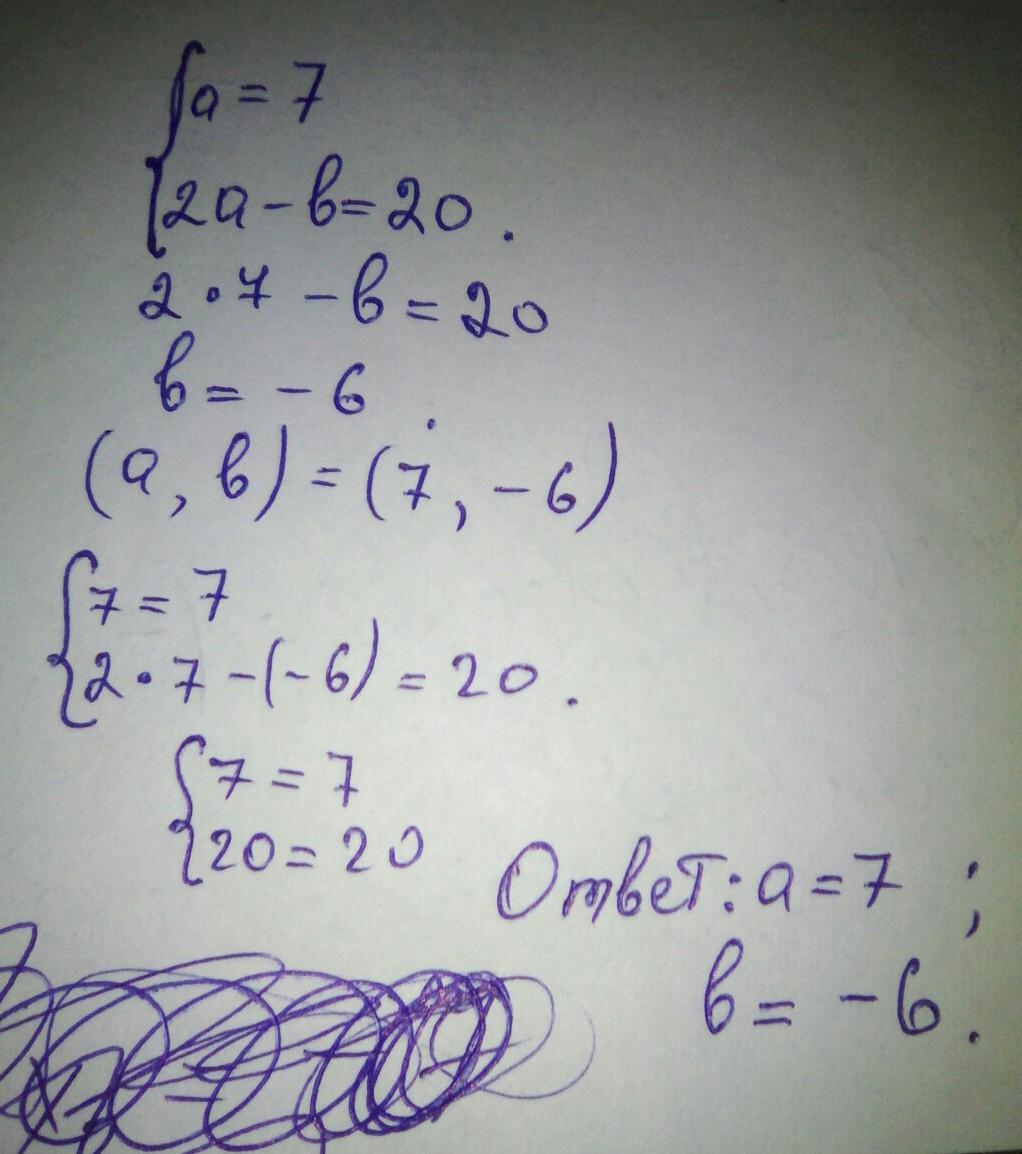 {a = 7
{2a - b = 20.
2 · 7 - b = 20
b = - 6.
(a, b) = (7, - 6)
{7 = 7
{2 · 7 - (- 6) = 20.
{7 = 7
{20 = 20
Ответ: a = 7 ;
b = - 6.